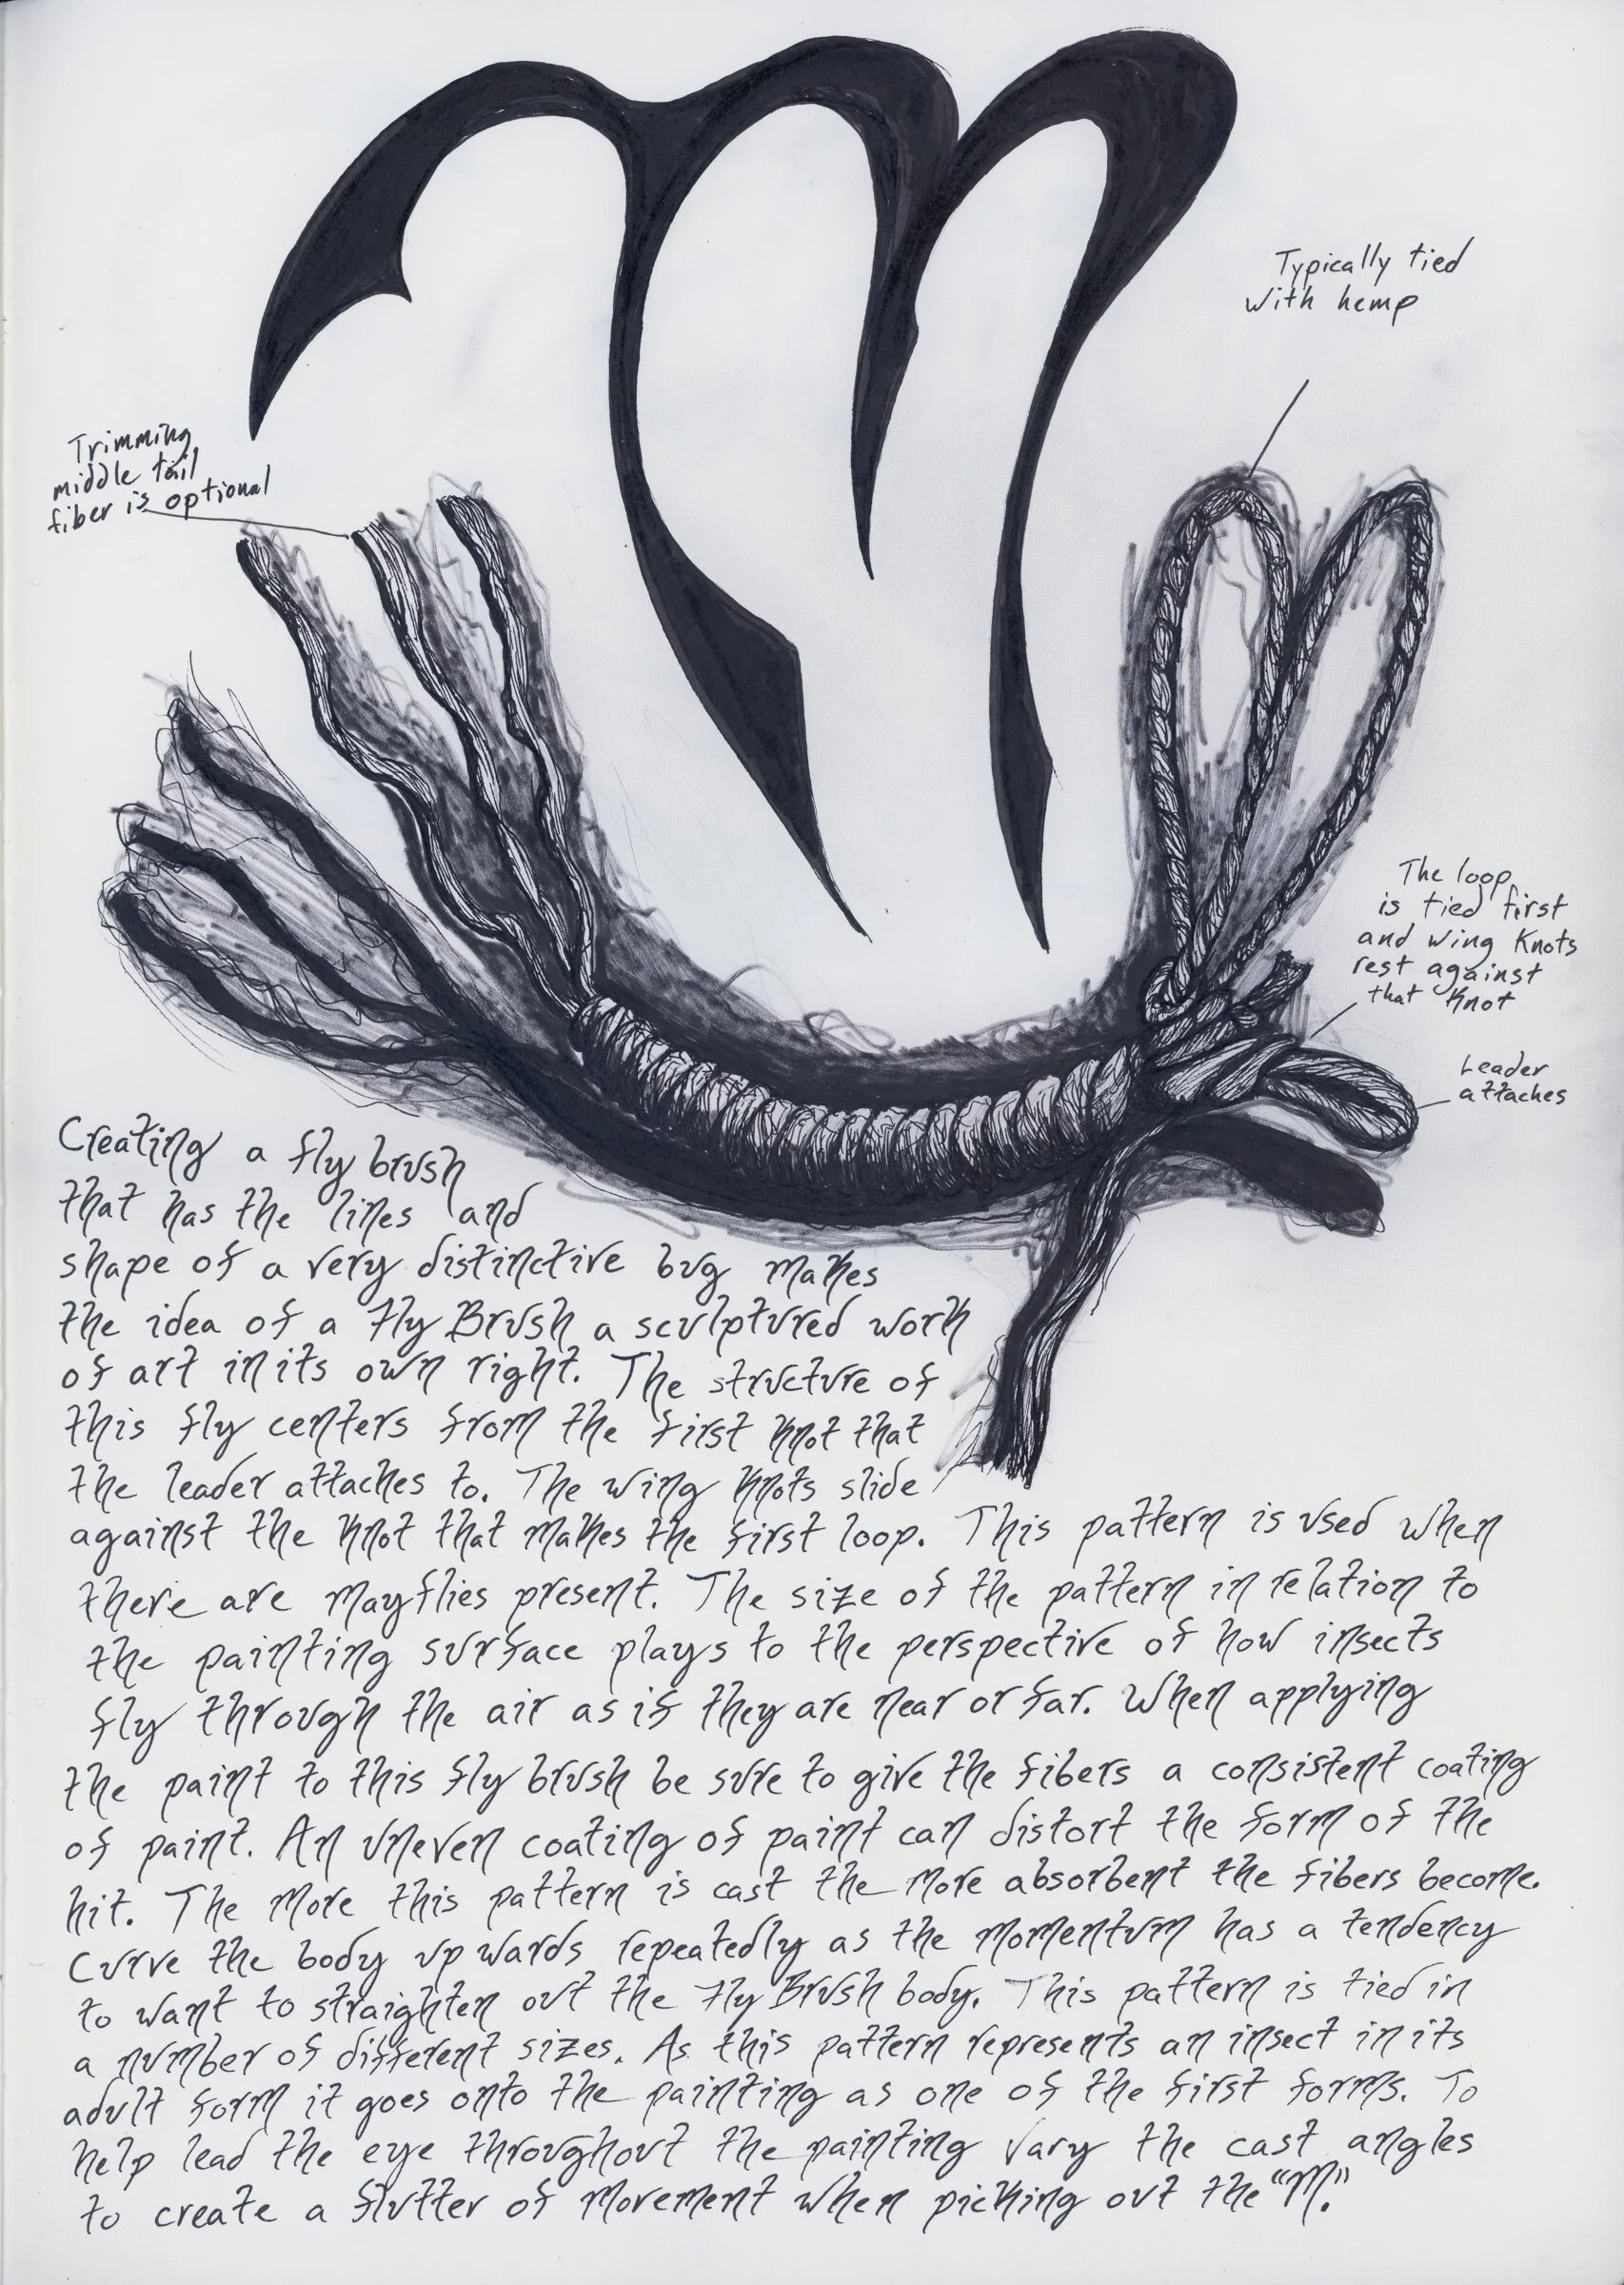 M
Typically tied
with hemp
Trimming
middle tail
fiber is optional
The loop
is tied first
and wing knots
rest against
that knot
Leader
attaches
Creating a fly brush
that has the lines and
shape of a very distinctive bug makes
the idea of a Fly Brush a sculptured work
of art in its own right. The structure of
this fly centers from the first knot that
the leader attaches to. The wing knots slide
against the knot that makes the first loop. This pattern is used when
there are mayflies present. The size of the pattern in relation to
the painting surface plays to the perspective of how insects
fly through the air as if they are near or far. When applying
the paint to this fly brush be sure to give the fibers a consistent coating
of paint. An uneven coating of paint can distort the form of the
hit. The more this pattern is cast the more absorbent the fibers become.
Curve the body upwards repeatedly as the momentum has a tendency
to want to straighten out the Fly Brush body. This pattern is tied in
a number of different sizes. As this pattern represents an insect in its
adult form it goes onto the painting as one of the first forms. To
help lead the eye throughout the painting vary the cast angles
to create a flutter of movement when picking out the "M."